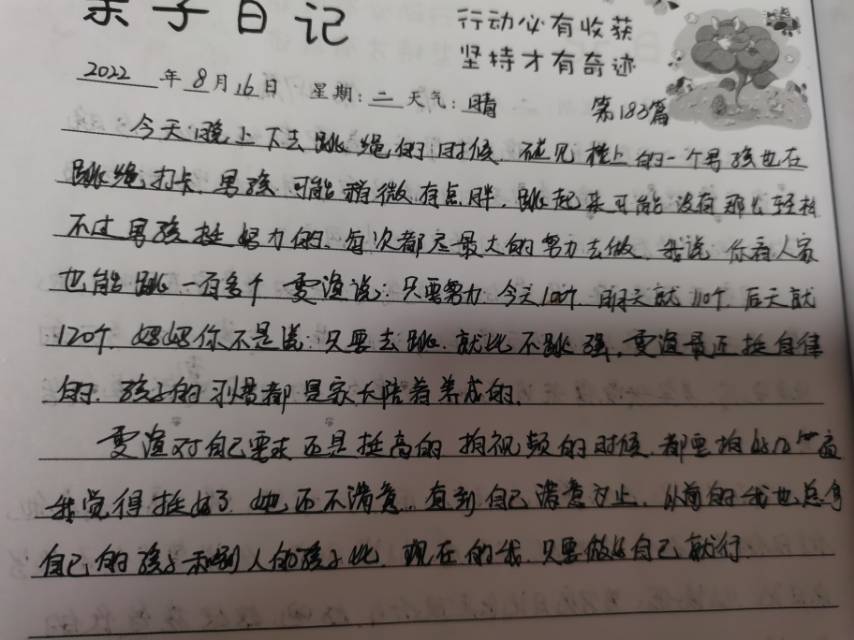 亲子日记
行动必有收获
坚持才有奇迹
2022年8月16日 星期:二 天气:晴 第183篇
今天晚上下去跳绳的时候,碰见楼上的一个男孩也在
跳绳打卡,男孩可能稍微有点胖,跳起来可能没有那么轻松
不过男孩挺努力的,每次都尽最大的努力去做,我说:你看人家
也能跳一百多个 雯渲说:只要努力,今天100个,明天就110个,后天就
120个,妈妈你不是说:只要去跳,就比不跳强,雯渲最近挺自律
的,孩子的习惯都是家长陪着养成的,
雯渲对自己要求还是挺高的 拍视频的时候,都要拍好几遍
我觉得挺好了,她还不满意,直到自己满意为止,以前的我也总拿
自己的孩子和别人的孩子比,现在的我,只要做好自己就行